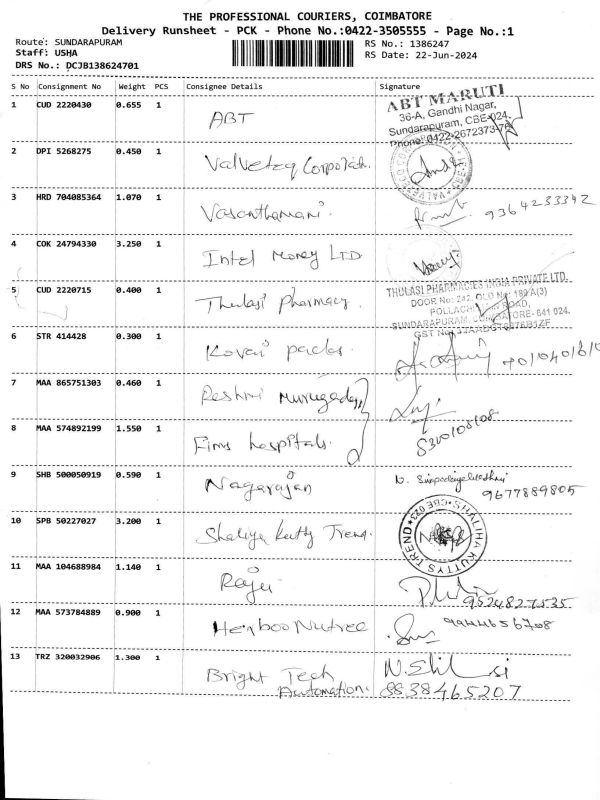 THE PROFESSIONAL COURIERS, COIMBATORE
Delivery Runsheet - PCK - Phone No.:0422-3505555 - Page No.:1
Route: SUNDARAPURAM RS No.: 1386247
Staff: USHA RS Date: 22-Jun-2024
DRS No.: DCJB138624701
S No Consignment No Weight PCS Consignee Details Signature
1 CUD 2220430 0.655 1 ABT ABT MARUTI
36-A, Gandhi Nagar,
Sundarapuram, CBE-024.
Phone: 0422-2672373-76
2 DPI 5268275 0.450 1 Valveteq Corporatn.
3 HRD 704085364 1.070 1 Vasanthamani. 9364233342
4 COK 24794330 3.250 1 Intel Money LTD
5 CUD 2220715 0.400 1 Thulasi Pharmacy. THULASI PHARMACIES INDIA PRIVATE LTD.
DOOR No: 242, OLD No: 189 A(3)
POLLACHI ROAD,
SUNDARAPURAM, COIMBATORE- 641 024.
6 STR 414428 0.300 1 Kovai packs.
7 MAA 865751303 0.460 1 Reshmi Murugadas
8 MAA 574892199 1.550 1 Fims hospitals. 8300108108
9 SHB 500050919 0.590 1 Nagarajan 9677889805
10 SPB 50227027 3.200 1 Shaliya kutty Trend. SHALIHA KUTTYS TREND CBE 023
11 MAA 104688984 1.140 1 Raju 9524827535
12 MAA 573784889 0.900 1 Herboo Nutree 9944656708
13 TRZ 320032906 1.300 1 Bright Tech
Automation. 8838465207